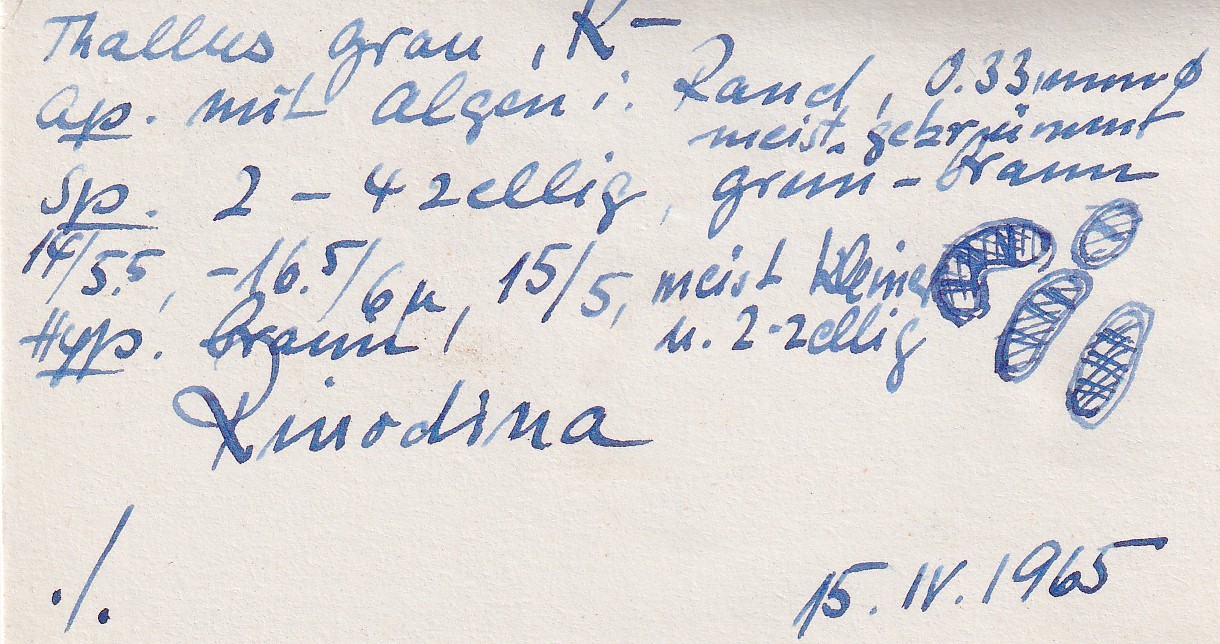 Thallus grau, K-
Ap. mit Algen i. Rand, 0.33 mm ø
meist gekrümmt
Sp. 2-4 zellig, grün-braun
14/5.5, -16.5/6 µ, 15/5, meist kleiner
u. 2-zellig
Hyp. braun,
Rinodina
./.
15.IV.1965